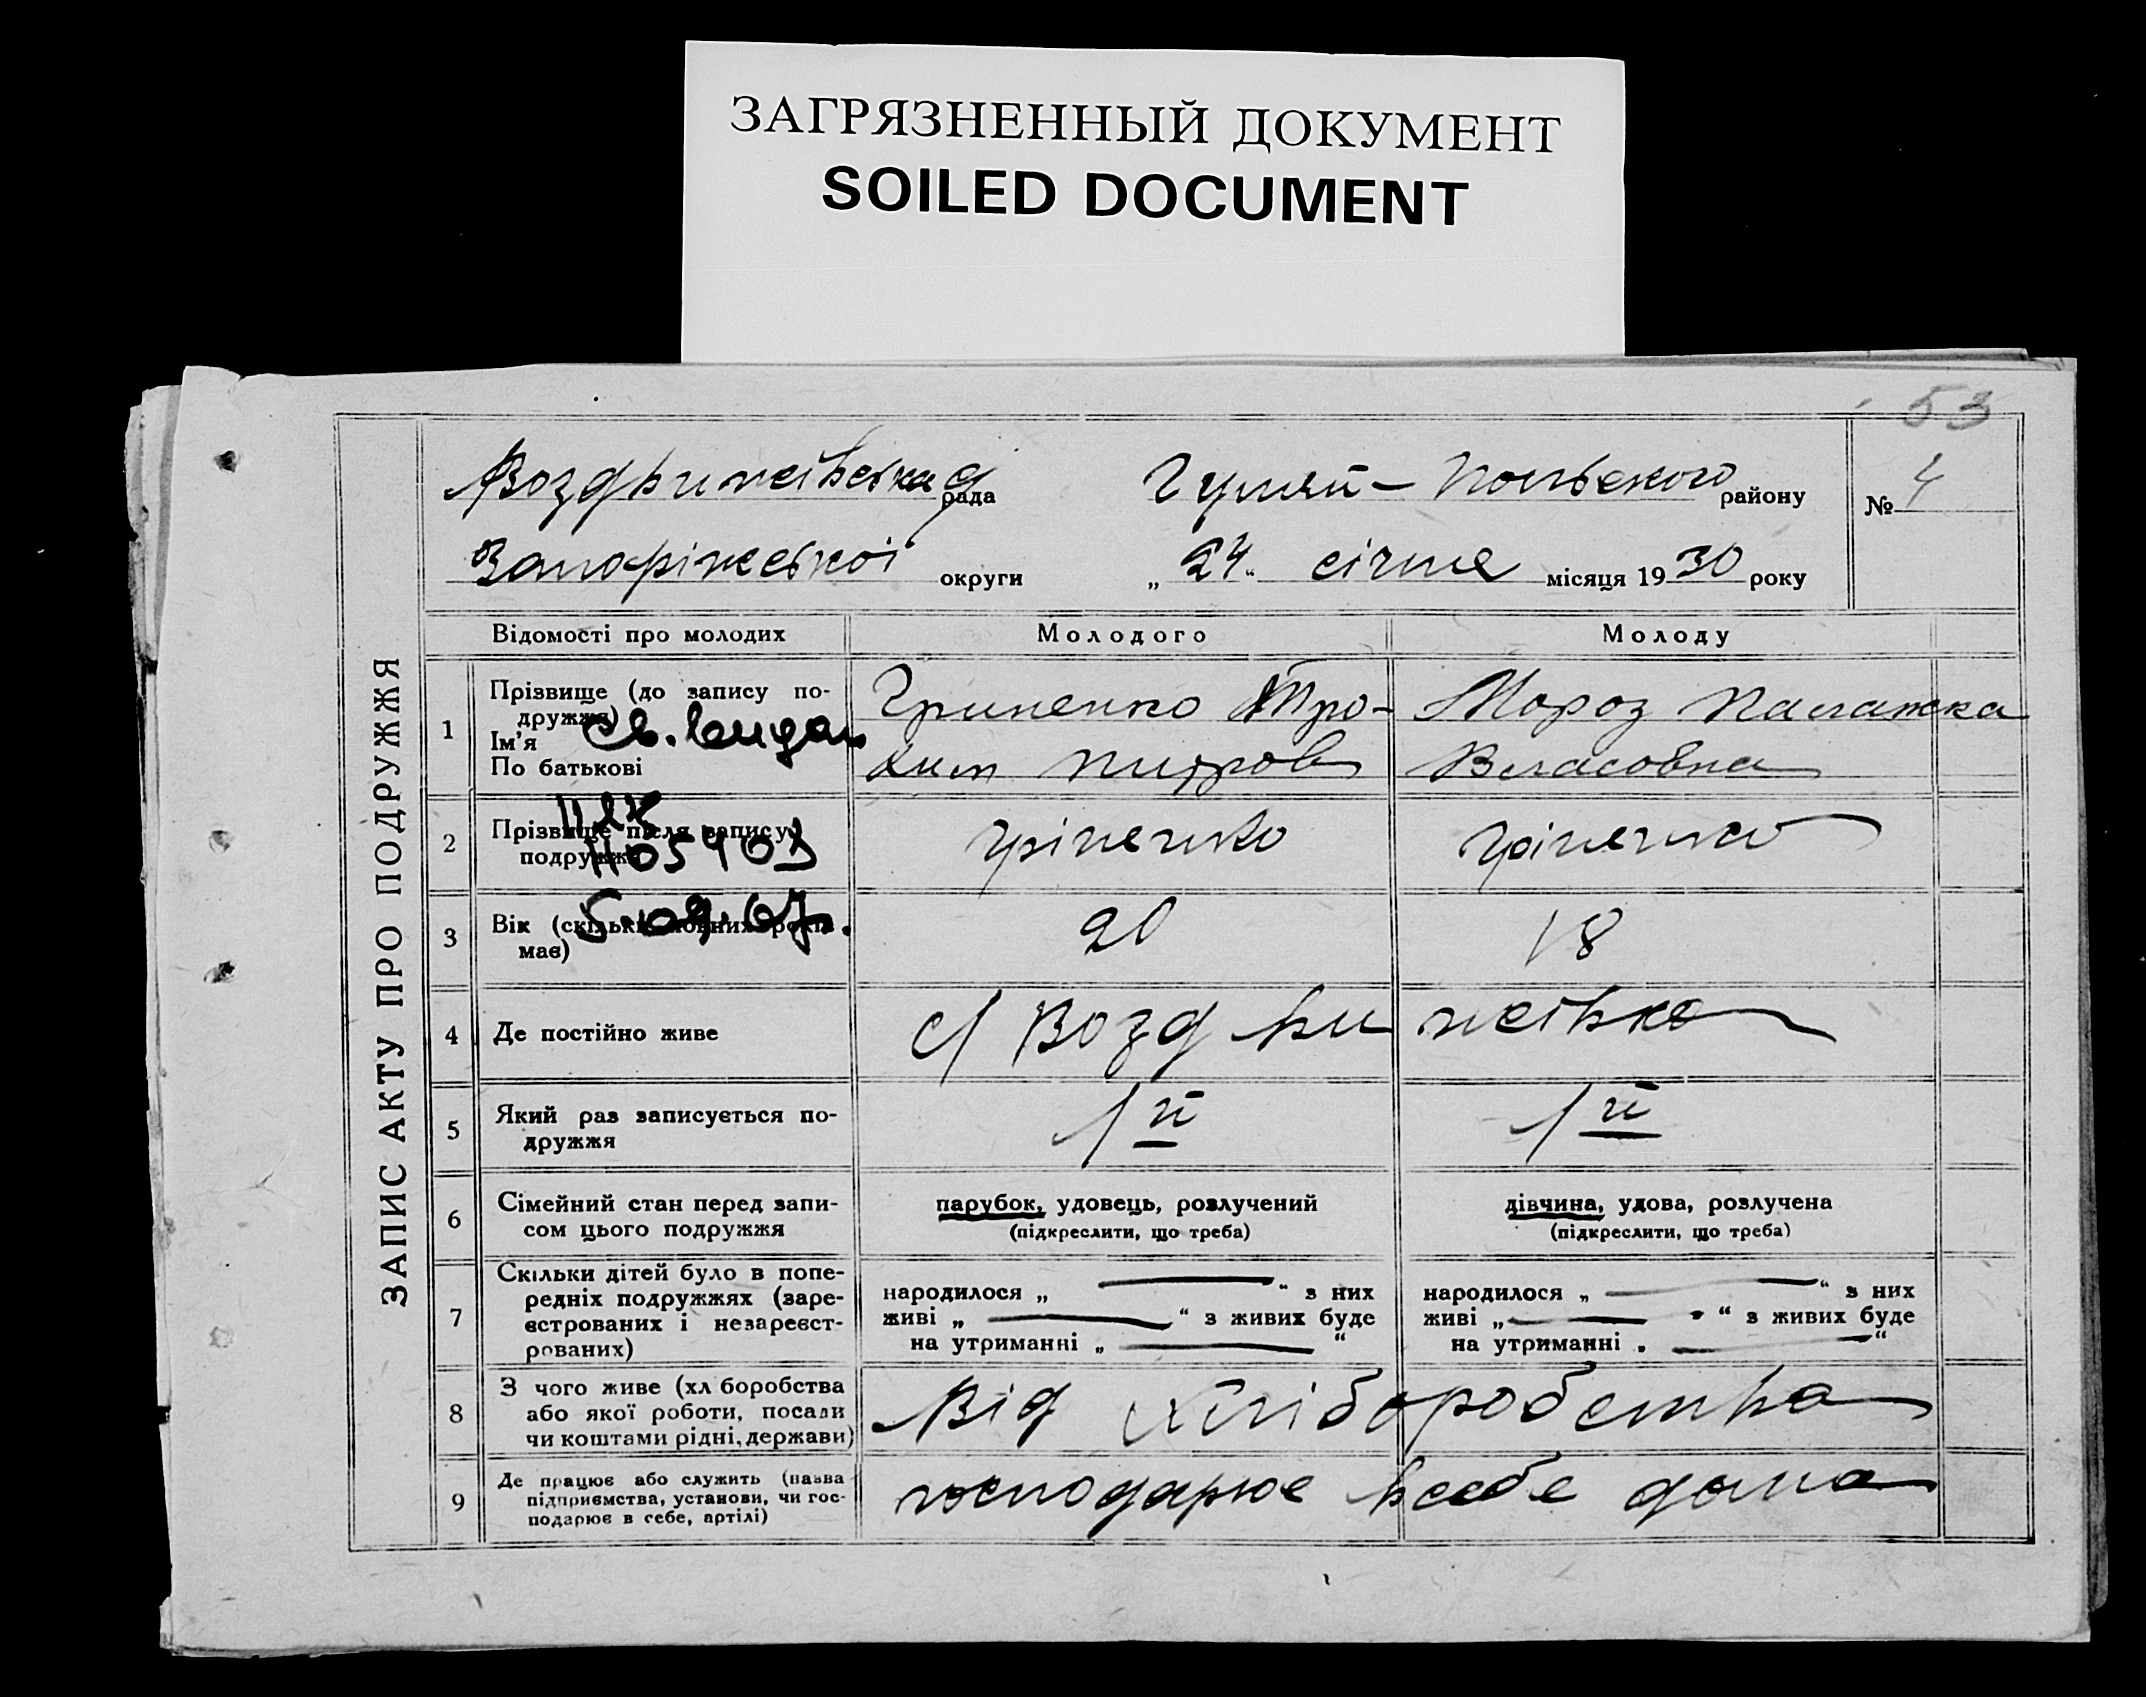 ЗАГРЯЗНЕННЫЙ ДОКУМЕНТ
SOILED DOCUMENT
53
Воздвижівська рада Гуляй-Польського району № 4
Запоріжської округи „24“ січня місяця 1930 року
ЗАПИС АКТУ ПРО ПОДРУЖЖЯ
Відомості про молодих Молодого Молоду
1 Прізвище (до запису по-
дружжя)
Ім'я
По батькові
Св. видан
Гриненко Тро-
хим Питров
Мороз Палажка
Власовна
2 Прізвище після запису
подружжя
1105903
Гріненко Гріненко
3 Вік (скільки повних років
має)
5.09.67.
20 18
4 Де постійно живе с/ Воздвижівка
5 Який раз записується по-
дружжя
1й 1й
6 Сімейний стан перед запи-
сом цього подружжя
парубок, удовець, розлучений
(підкреслити, що треба)
дівчина, удова, розлучена
(підкреслити, що треба)
7 Скільки дітей було в попе-
редніх подружжях (заре-
єстрованих і незареєст-
рованих)
народилося „ — “ з них
живі „ — “ з живих буде
на утриманні „ — “
народилося „ — “ з них
живі „ — “ з живих буде
на утриманні „ — “
8 З чого живе (хл боробства
або якої роботи, посади
чи коштами рідні, держави)
Від хліборобства
9 Де працює або служить (назва
підприємства, установи, чи гос-
подарює в себе, артілі)
господарює всебе дома